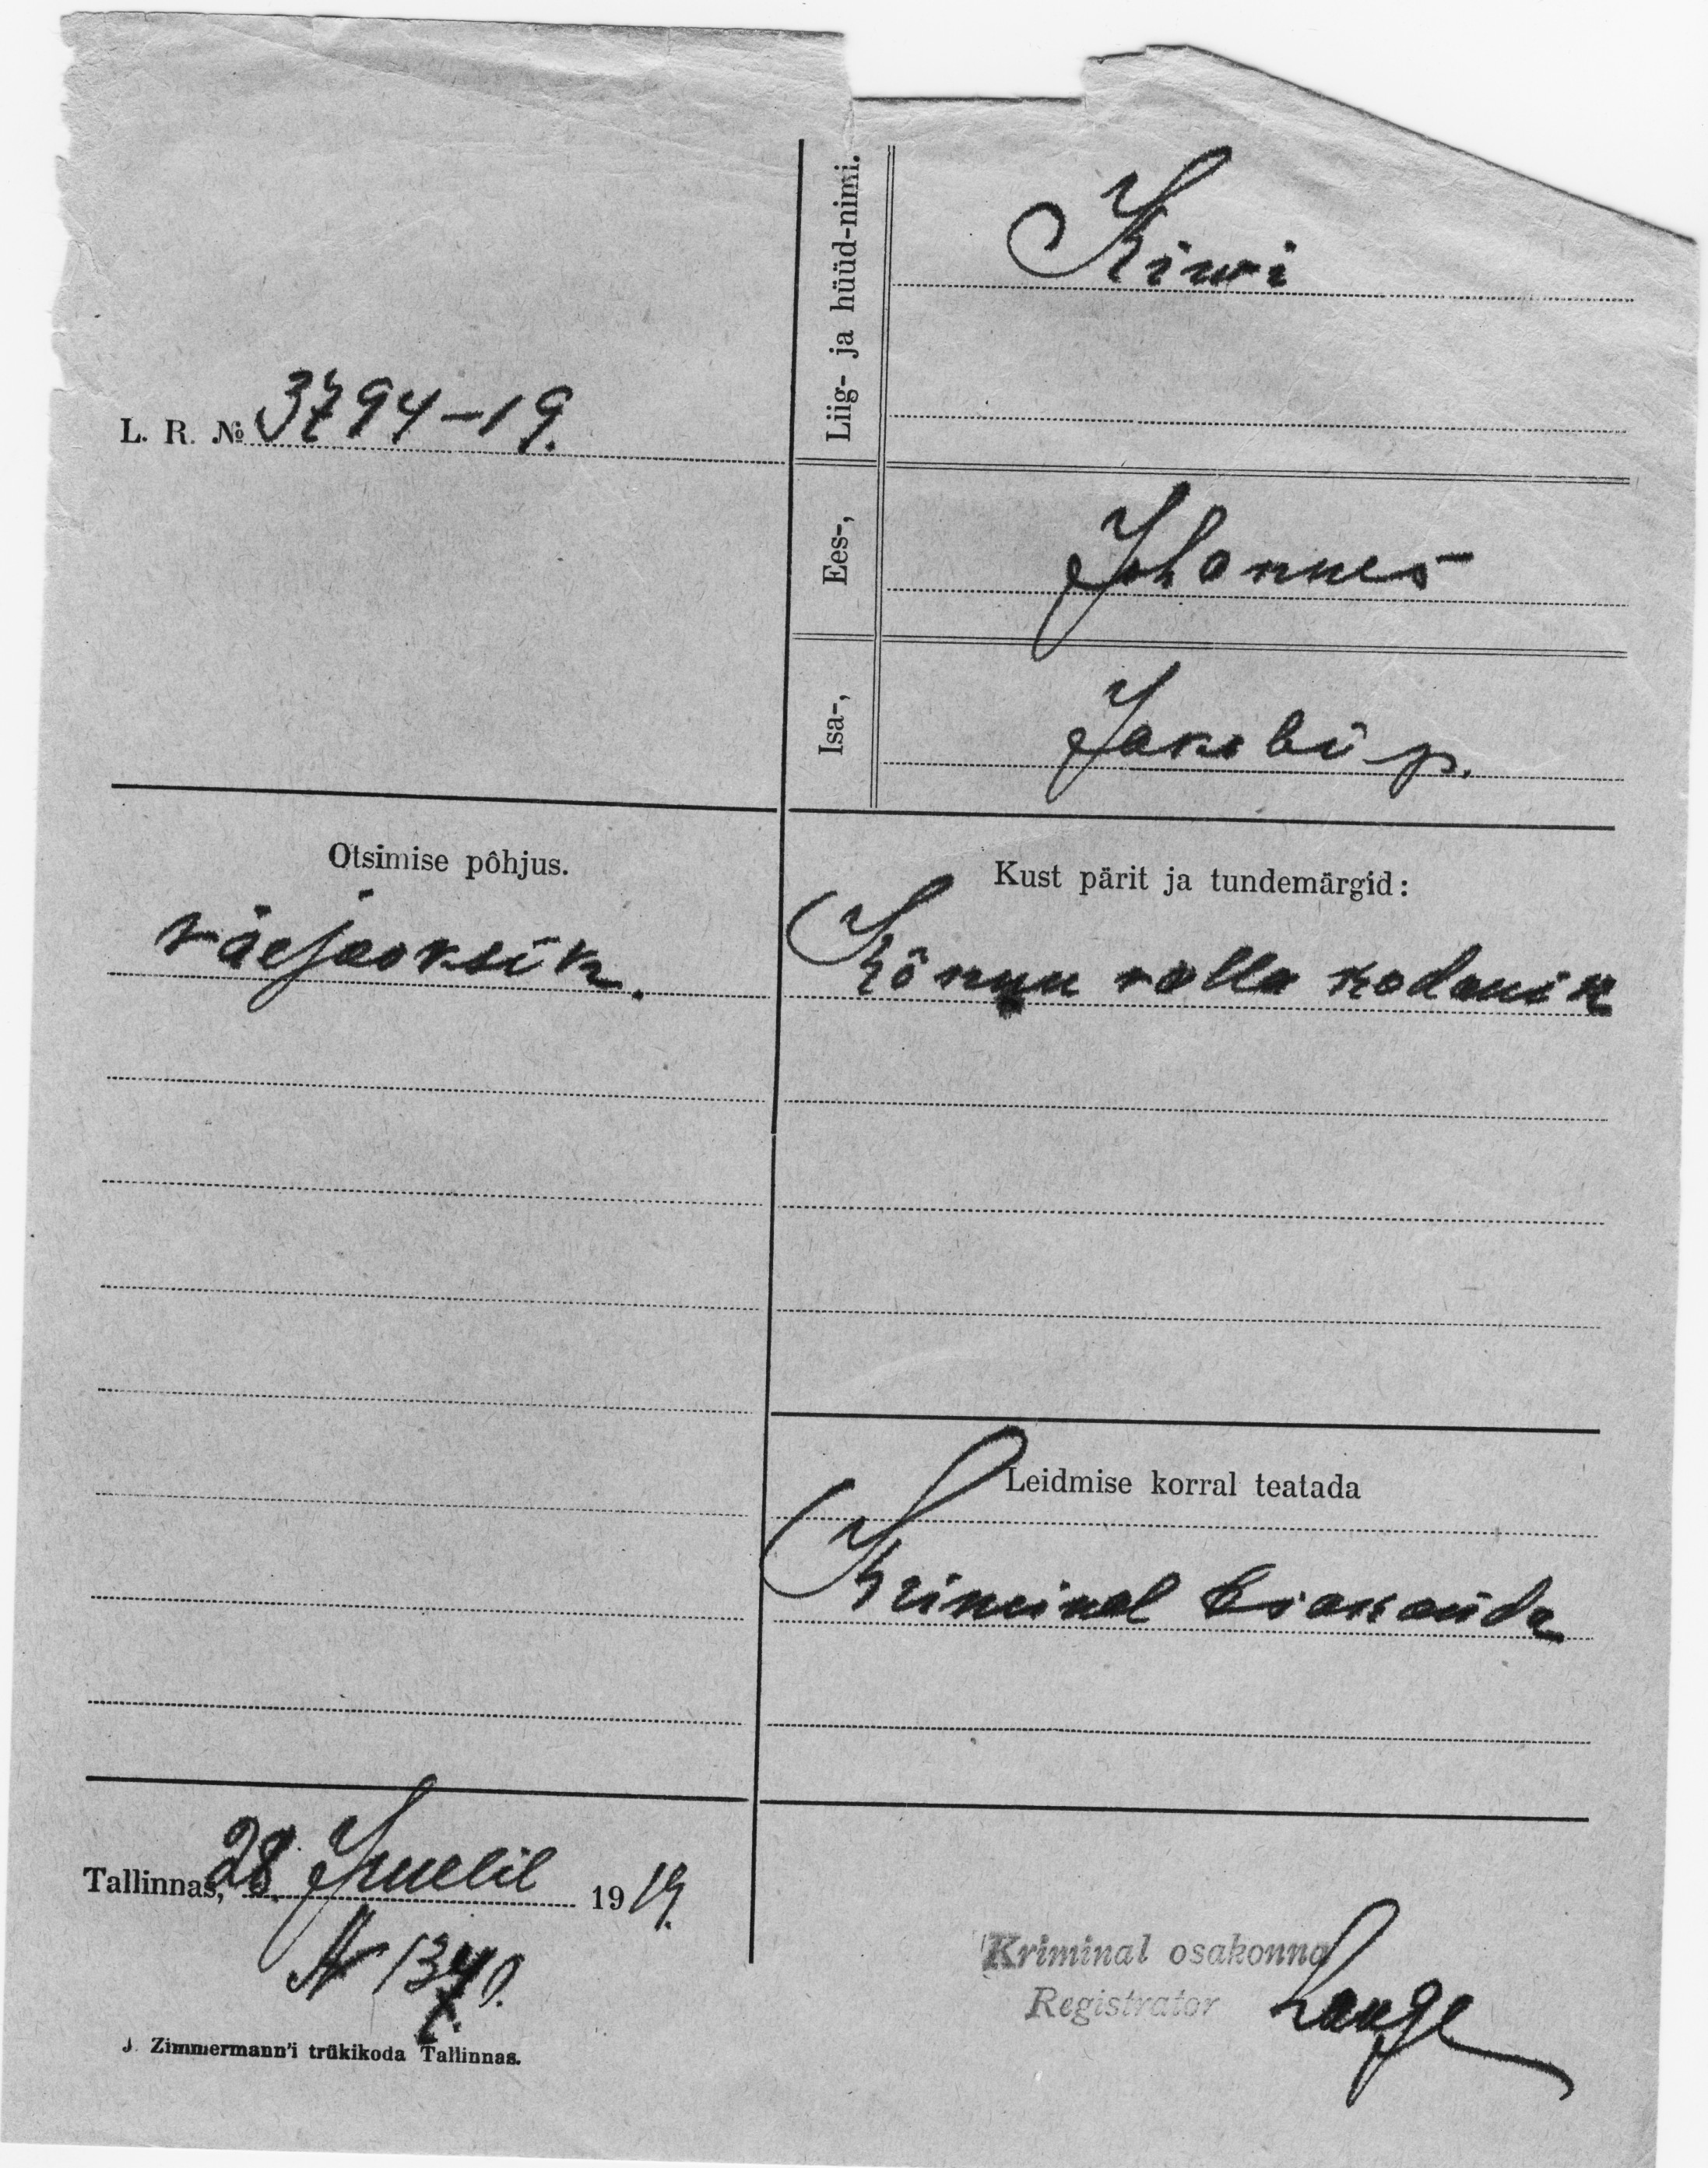 L. R. № 3794-19.
Liig- ja hüüd-nimi.
Kiwi
Ees-,
Johannes
Isa-,
Jakobi p.
Otsimise põhjus.
väejooksik.
Kust pärit ja tundemärgid:
Kõnnu valla kodanik
Leidmise korral teatada
Kriminal
Tallinnas, 28. Juulil 1919.
N
J. Zimmermann'i trükikoda Tallinnas.
Kriminal osakonna
Registrator Lange